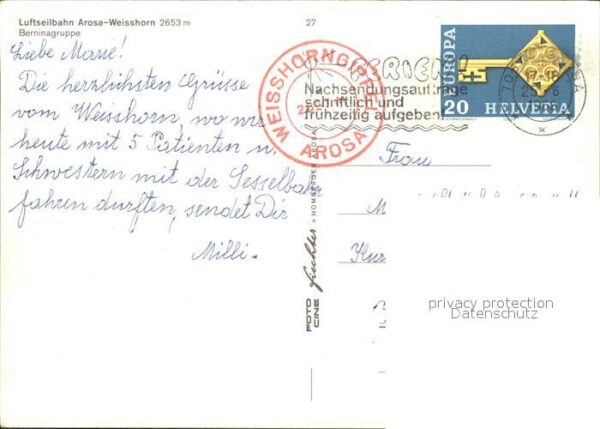 Luftseilbahn Arosa-Weisshorn 2653 m
Berninagruppe
27
Liebe Marie!
Die herzlichsten Grüsse
vom Weisshorn, wo wir
heute mit 5 Patienten u.
Schwestern mit der Sesselbahn
fahren durften, sendet Dir
Milli.
WEISSHORNGIPFEL
AROSA
FERIEN
Nachsendungsaufträge
schriftlich und
frühzeitig aufgeben!
EUROPA
20 HELVETIA
AROSA
Frau
M
Kur
FOTO
CINE
HOMBERGER AROSA
privacy protection
Datenschutz